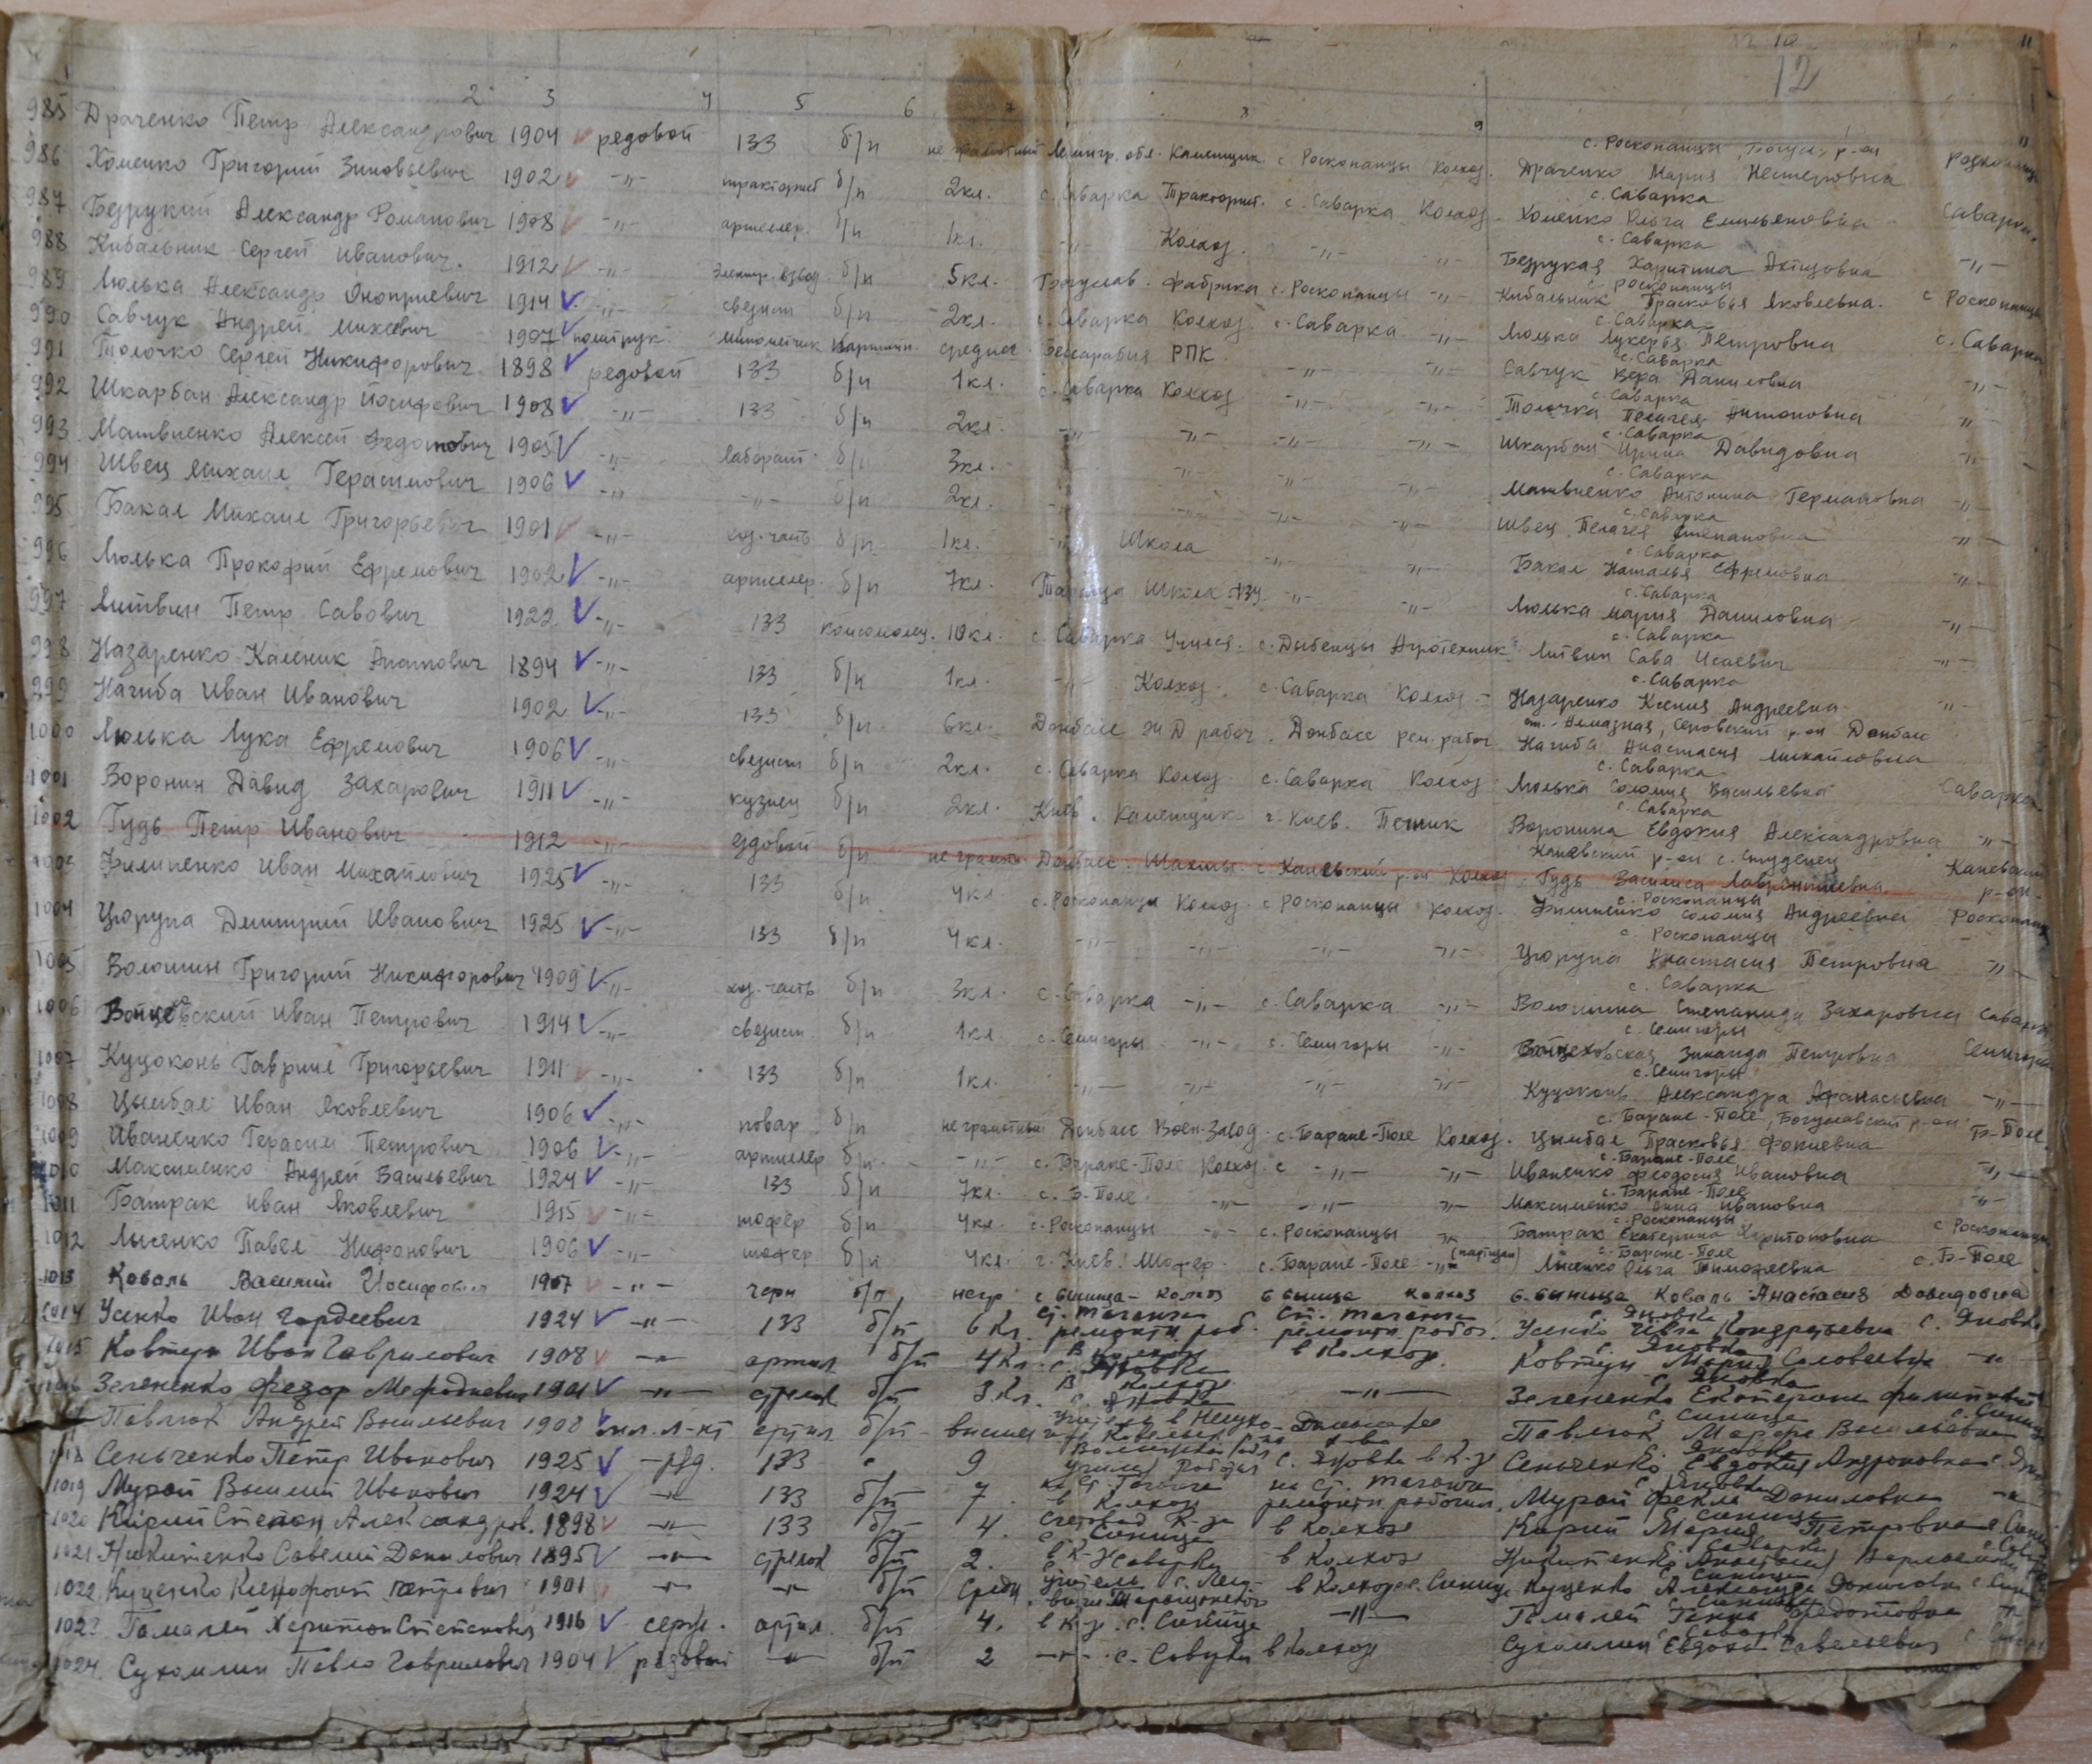 12 10 11
12
2 3 4 5 6 7 8 9
985 Драченко Петр Александрович 1904 редовой 133 б/п не грамотный Ленингр. обл. Каменщик с. Росконанцы Колхоз. с. Росконанцы, Богусл. р-он Драченко Мария Нестеровна
986 Хоменко Григорий Зиновьевич 1902 -"- тракторист б/п 2кл. с. Саварка Тракторист. с. Саварка Колхоз с. Саварка Хоменко Ольга Емильяновна Саварка
987 Безрукий Александр Романович 1908 -"- артиллер. б/п 1кл. -"- Колхоз. -"- -"- с. Саварка Безрукая Харитина -"-
988 Кибальник Сергей Иванович. 1912 -"- б/п 5кл. Богуслав. фабрика с. Росконанцы -"- с. Росконанцы Кибальник Прасковья Яковлевна. с Росконанцы
989 Люлька Александр Оноприевич 1914 -"- связист б/п 2кл. с. Саварка Колхоз. с. Саварка -"- с. Саварка Люлька Лукерья Петровна с. Саварка
990 Савчук Андрей Михеевич 1907 политрук. минометчик средн. Бессарабия РПК. -"- -"- с. Саварка Савчук Вера Даниловна -"-
991 Толочко Сергей Никифорович 1898 редовой 133 б/п 1кл. с. Саварка Колхоз -"- -"- с. Саварка Толочка Пелагея Антоновна -"-
992 Шкарбан Александр Иосифович 1908 -"- 133 б/п 2кл. -"- -"- -"- -"- с. Саварка Шкарбан Ирина Давидовна -"-
993 Матвиенко Алексей Федотович 1905 -"- лаборант б/п 3кл. -"- -"- -"- с. Саварка Матвиенко Антонина Германовна -"-
994 Швец Михаил Герасимович 1906 -"- -"- б/п 2кл. -"- -"- -"- -"- с. Саварка Швец Пелагея Степановна -"-
995 Бакал Михаил Григорьевич 1901 -"- хоз-часть б/п 1кл. -"- Школа -"- -"- с. Саварка Бакал Наталья Ефремовна -"-
996 Люлька Прокофий Ефремович 1902 -"- артиллер. б/п 7кл. Школа -"- -"- с. Саварка Люлька Мария Даниловна -"-
997 Литвин Петр Савович 1922 -"- 133 комсомолец. 10кл. с. Саварка Учился. с. Дыбенцы Агротехник с. Саварка Литвин Сава Исаевич -"-
998 Назаренко Каленик 1894 -"- 133 б/п 1кл. -"- Колхоз. с. Саварка Колхоз - с. Саварка Назаренко Ксения Андреевна -"-
999 Нагиба Иван Иванович 1902 -"- 133 б/п 6кл. Донбасс Ж Д рабоч. Донбасс рем. рабоч ст. Алмазная, р-он Донбасс Нагиба Анастасия Михайловна
1000 Люлька Лука Ефремович 1906 -"- связист б/п 2кл. с. Саварка Колхоз. с. Саварка Колхоз с. Саварка Люлька Соломия Васильевна Саварка
1001 Воронин Давид Захарович 1911 -"- кузнец б/п 2кл. Киев. Каменщик г. Киев. Печник с. Саварка Воронина Евдокия Александровна -"-
1002 Гудь Петр Иванович 1912 -"- ездовой б/п не грамотн Донбасс. Шахты. с. Каневский р-он Колхоз Каневский р-он с. Студенец Гудь Василиса Лаврентиевна Каневский р-он.
1003 Филипенко Иван Михайлович 1925 -"- 133 б/п 4кл с. Росконанцы Колхоз. с Росконанцы колхоз. с. Росконанцы Филипенко Соломия Андреевна Росконанцы
1004 Цюрупа Дмитрий Иванович 1925 -"- 133 б/п 4кл. -"- -"- -"- -"- с. Росконанцы Цюрупа Анастасия Петровна -"-
1005 Волошин Григорий Никифорович 1909 -"- хоз-часть б/п 3кл. с. Саварка -"- с. Саварка -"- с. Саварка Волошина Степанида Захаровна Саварка
1006 Войцеховский Иван Петрович 1914 -"- связист б/п 1кл. с. Семигоры -"- с. Семигоры -"- с. Семигоры Войцеховская Зинаида Петровна Семигоры
1007 Куцоконь Гавриил Григорьевич 1911 -"- 133 б/п 1кл. -"- -"- -"- -"- с. Семигоры Куцоконь Александра Афанасьевна -"-
1008 Цымбал Иван Яковлевич 1906 -"- повар б/п не грамотный Донбасс Воен-Завод с. Баране-Поле Колхоз. с. Баране-Поле, Богуславский р-он Цымбал Прасковья Фокиевна Б-Поле.
1009 Иваненко Герасим Петрович 1906 -"- артиллер б/п -"- с. Баране-Поле Колхоз. с -"- -"- с. Баране-Поле Иваненко Феодосия Ивановна -"-
1010 Максименко Андрей Васильевич 1924 -"- 133 б/п 7кл. с. Б-Поле -"- -"- -"- с. Баране-Поле Максименко Анна Ивановна -"-
1011 Батрак Иван Яковлевич 1915 -"- шофер б/п 4кл. с. Росконанцы -"- с. Росконанцы -"- с. Росконанцы Батрак Екатерина Харитоновна с Росконанцы
1012 Лысенко Павел Нифонович 1906 -"- шофер б/п 4кл. г. Киев. Шофер. с. Баране-Поле -"- (партизан) с. Баране-Поле Лысенко Ольга Тимофеевна с. Б-Поле
1013 Коваль Василий Иосифович 1907 -"- б/п негр с Синица Колхоз с Синица колхоз с. Синица Коваль Анастасия Давидовна
1014 Усенко Иван Гордеевич 1924 -"- 133 б/п 6 Кл. ст. Таганча ремонтн. раб. ст. Таганча ремонтн. рабоч. с. Яновка Усенко Кондратьевна с. Яновка
1015 Ковтун Иван Гаврилович 1908 -"- артил б/п 4Кл. в Колхозе с. Яновка в Колхоз. с. Яновка Ковтун Мария Соловеевна -"-
1016 Зелененко Федор Мефодиевич 1901 -"- стрелок б/п 3 Кл. в Колхозе с. Яновка -"- с. Яновка Зелененко Екатерина
Павлюк Андрей Васильевич 1908 мл. л-нт артил б/п Павлюк Марфа Васильевна
1018 Сеньченко Петр Иванович 1925 ряд. 133 9 с. Яновка в К-з с. Яновка Сеньченко Евдокия Андроновна
1019 Мурай Василий Иванович 1924 -"- 133 б/п 7 на ст. Таганча ремонтн. рабочим. с. Яновка Мурай Фекла Даниловна -"-
1020 Кирий Степан Александров. 1898 -"- 133 б/п 4. с. Синица в Колхозе с. Синица Кирий Мария Петровна
1021 Никитенко Савелий Данилович 1895 -"- стрелок б/п 2. в Колхоз Никитенко
1022 Куценко Ксенофонт Петрович 1901 -"- -"- б/п средн. учитель в Колхозе с. Синица Куценко Александра
1023 Гамалей Харитон Степанович 1916 серж. артил. б/п 4. в К-з с. Синица -"- Гамалей Федотовна -"-
1024. Сухомлин Павло Гаврилович 1904 рядовой -"- б/п 2 -"- с. Савурки в Колхоз Сухомлин Евдокия Савельевна